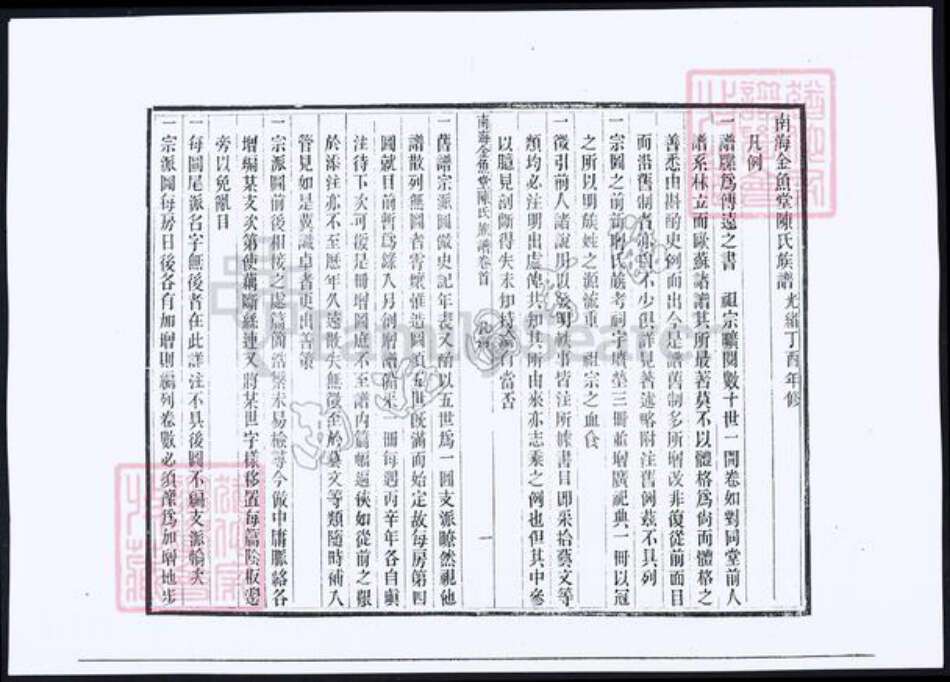 南海金魚堂陳氏族譜 光緒丁酉年修
凡例
一譜牒為傳遠之書 祖宗曠閱數十世一開卷如對同堂前人
譜系林立而歐蘇諸譜其所最著莫不以體格為尙而體格之
善悉由斟酌史例而出今是譜舊制多所增改非復從前面目
而沿舊制者亦不少俱詳見著述略附注舊例茲不具列
一宗圖之前新增氏族考祠宇墳塋三冊並增廣祀典一冊以冠
之所以明族姓之源流重 祖宗之血食
一徵引前人諸說用以發明軼事皆注所據書目即采拾藝文等
類均必注明出處俾共知其所由來亦志乘之例也但其中參
以臆見剖斷得失未知持論有當否
南海金魚堂陳氏族譜卷首 凡例 一
一舊譜宗派圖倣史記年表又酌以五世為一圖支派瞭然視他
譜散列無圖者霄壤惟造圖須五世既滿而始定故每房第四
圖就目前暫為錄入另創增譜備采一冊每遇丙辛年各自塡
注待下次可復足冊增圖庶不至譜內篇幅過狹如從前之艱
於添注亦不至歷年久遠散失無徵至於藝文等類隨時補入
管見如是冀識卓者更出善策
一宗派圖前後相接之處篇簡浩繁未易檢尋今倣中庸脈絡各
增編某支次第使藕斷絲連又將某世字樣移置每篇陰板邊
旁以免亂目
一每圖尾派名字無後者在此詳注不具後圖不編支派輪次
一宗派圖每房日後各有加增則編列卷數必須產為加增地步